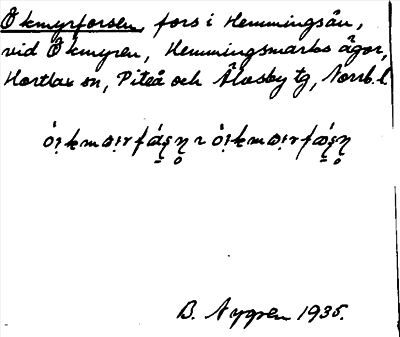 Ökmyrforsen, fors i Hemmingsån,
vid Ökmyren, Hemmingsmarks ägor,
Hortlax sn, Piteå och Älvsby tg, Norrb. l
B. Nygren 1935.